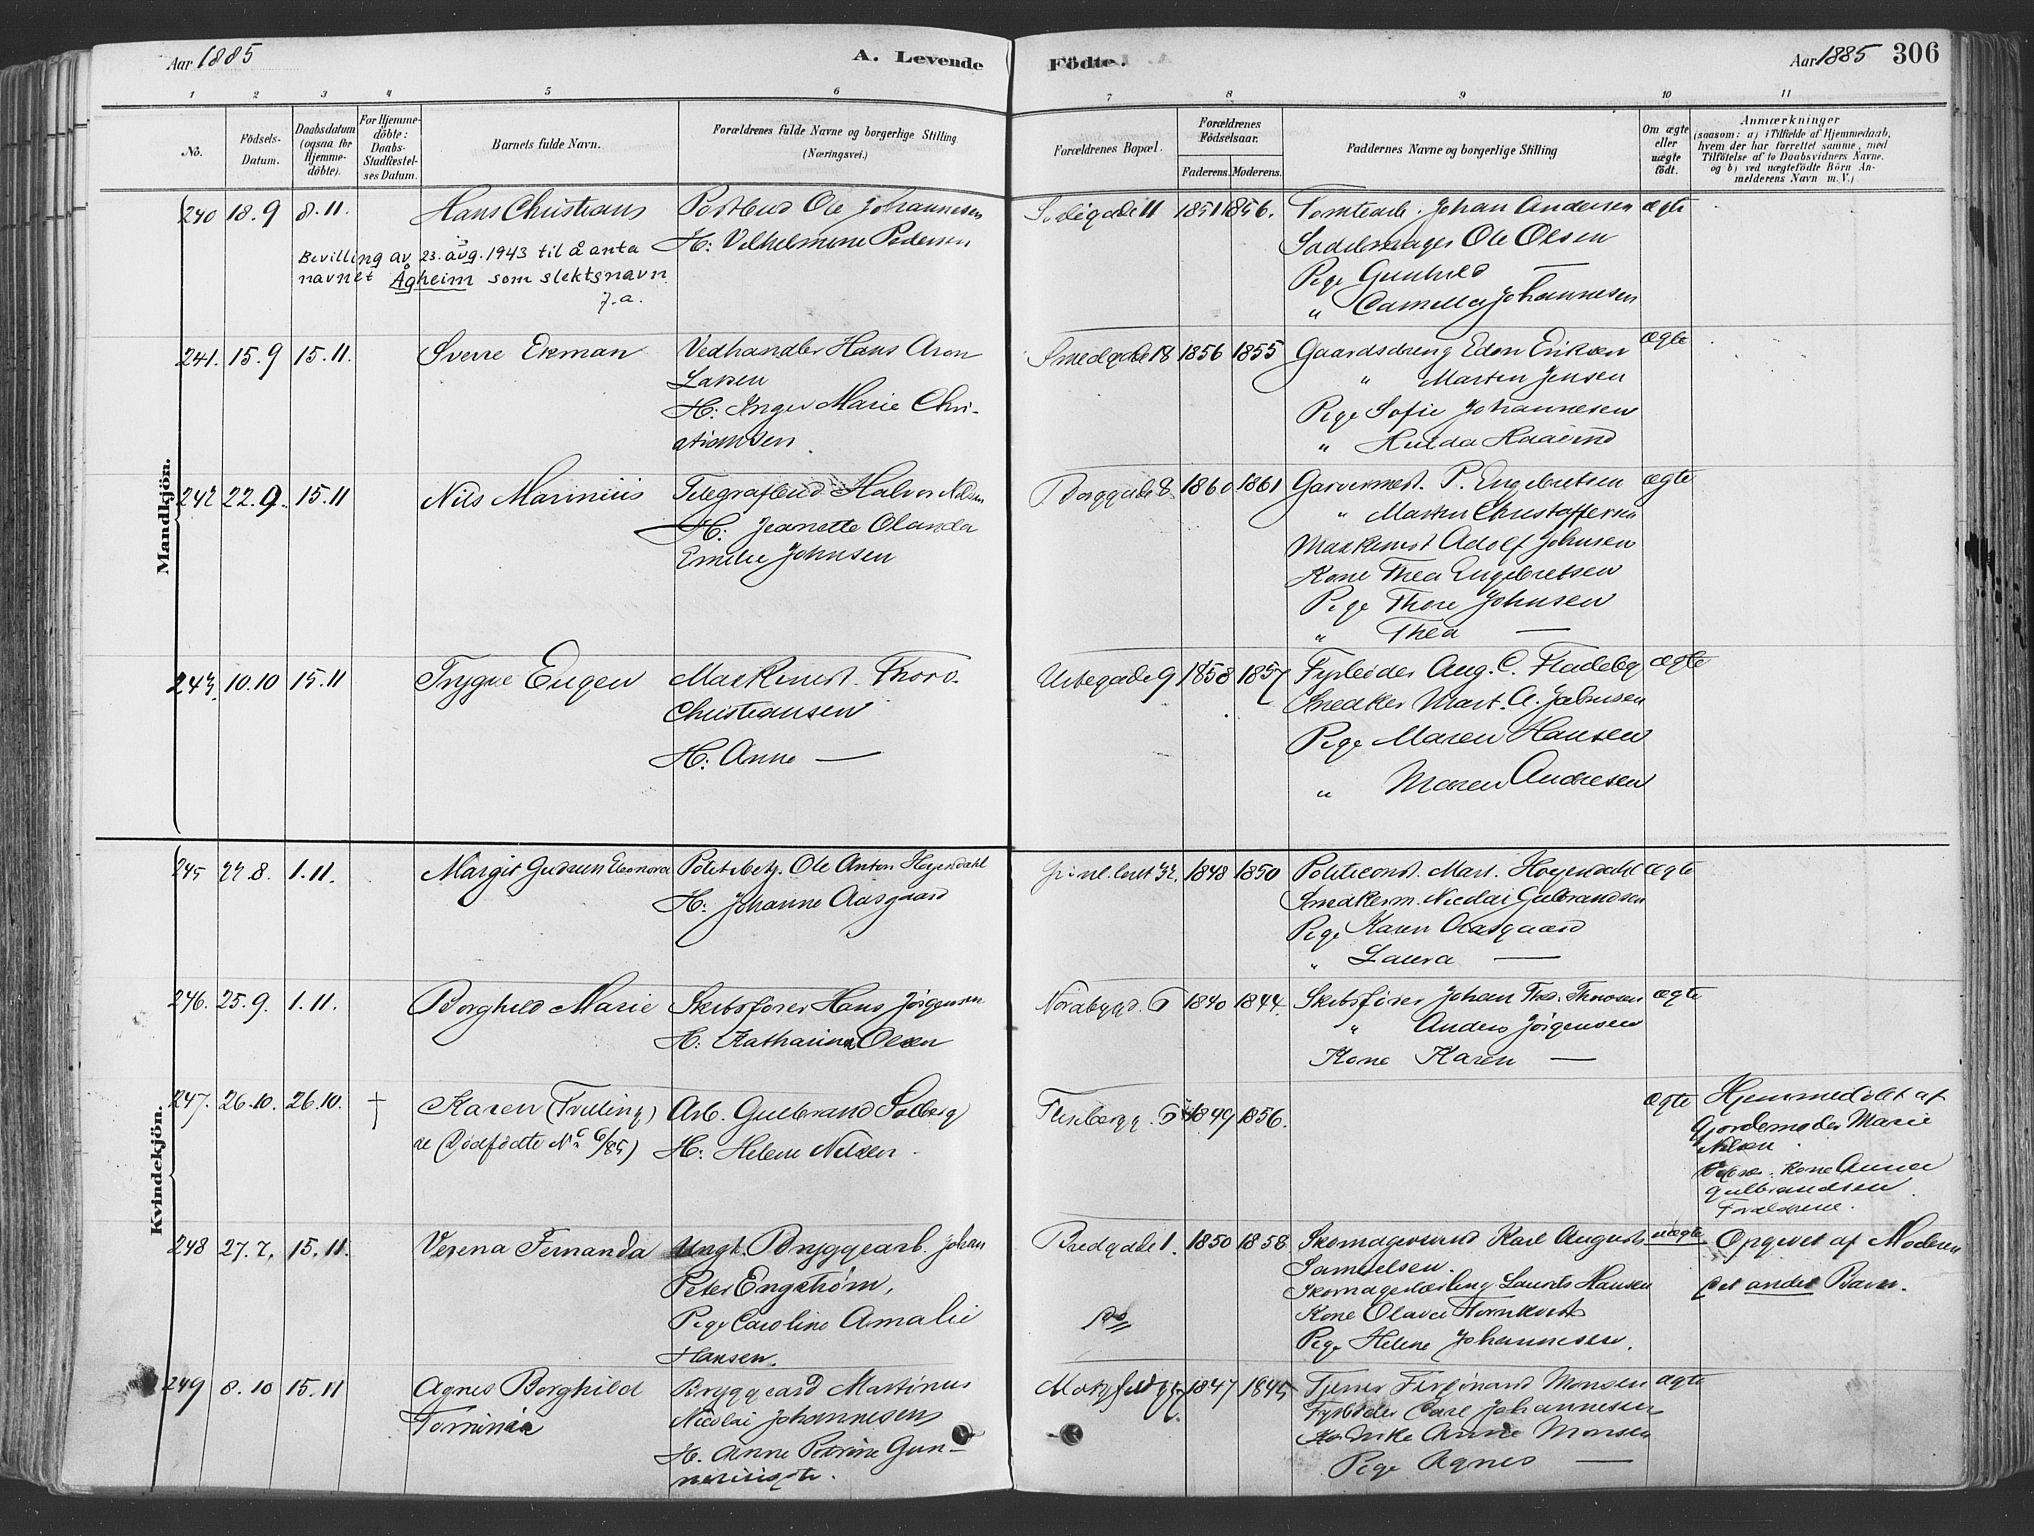 Aar 1885
A. Levende
Födte.
Aar 1885 306
1 2 3 4 5 6 7 8 9 10 11
No.
Födsels-
Datum.
Daabsdatum
(ogsaa for
Hjemme-
döbte).
For Hjemme-
döbte:
Daabs-
Stadfæstel-
ses Datum.
Barnets fulde Navn.
Forældrenes fulde Navne og borgerlige Stilling
(Næringsvei.)
Forældrenes Bopæl.
Forældrenes
Födselsaar.
Faderens. Moderens.
Faddernes Navne og borgerlige Stilling
Om ægte
eller
uægte
födt.
Anmærkninger
(saasom: a) i Tilfælde af Hjemmedaab,
hvem der har forrettet samme, med
Tilföielse af to Daabsvidners Navne.
og b) ved uægtefödte Börn An-
melderens Navn m. V.)
Mandkjön.
240 18.9 8.11. Hans Christians Postbud Ole Johannesen
H: Vilhelmine Pedersen
Bevilling av 23. aug. 1943 til å anta
navnet Ågheim som slektsnavn
J.a.
11 1851 1856. Tomtearb. Johan Andersen ægte
Sadelmager Ole Olsen
Pige Gunhild —
" Camilla Johannesen
241. 15.9 15.11. Sverre Ekman Vedhandler Hans Aron
Larsen
H: Inger Marie Chri-
stiansen
Smedgade 18 1856 1855 Gaardsdreng Edv. Eriksen ægte
" Martin Jensen
Pige Sofie Johannesen
" Hulda
242 22.9. 15.11 Nils Marinius Telegrafbud Halvor Nilsen
H: Jeanette Olanda
Emilie Johnsen
Borggade 8 1860 1861 Garvermest. P. Engebretsen ægte
" Martin Christoffersen
Maskinist Adolf Johnsen
Kone Thea Engebretsen
Pige Thore Johnsen
" Thea —
243. 10.10 15.11 Trygve Eugen Maskinist. Thorv.
Christiansen
H: Anne —
Urtegade 9 1858 1857 Fyrböder Aug. C. Fladeby ægte
Snedker Mart. A. Jakobsen
Pige Maren Hansen
" Maren Andresen
Kvindekjön.
245 27.8. 1.11. Margit Gudrun Eleonora Politibetj. Ole Anton Høyendahl
H: Johanne Aasgaard
Grönl.leret 32. 1848 1850 Politiconst. Mart. Høyendahl ægte
Snedkerm. Nicolai Gulbrandsen
Pige Karen Aasgaard
" Laura —
246. 25.9. 1.11. Borghild Marie Skibsfører Hans Jørgensen
H: Katharina Olsen
Nordbygd. 5 1840 1844. Skibsfører Johan Thoresen ægte
" Anders Jörgensen
Kone Karen —
247. 26.10. 26.10. † Karen (Trilling) Arb. Gulbrand Solberg
(Dödfödte No 6/85) H: Helene Nilsen
Flisebergg. 5 1849 1856. ægte Hjemmedöbt af
Gjordemoder Marie
Nilsen.
Kone Anna
Gulbrandsen.
Forældrene.
248 27.7. 15.11. Verena Fernanda Ungk. Bryggearb. Johan
Peter Engström,
Pige Caroline Amalie
Hansen.
Bredgade 1. 1850 1858 Skomagersvend Karl August uægte Opgivet af Moderen
Samuelsen.
Skomagerlærling Laurits Hansen det andet Barn.
Kone Olava Hornkvist
Pige Helene Johannesen.
249 8.10 15.11 Agnes Borghild Bryggearb Martinus
Nicolai Johannesens
H. Anne Petrine Gun-
1847 1845 Tjener Ferdinand Monsen ægte
Fyrböder Carl Johannesen
Anne Monsen
Pige Agnes —